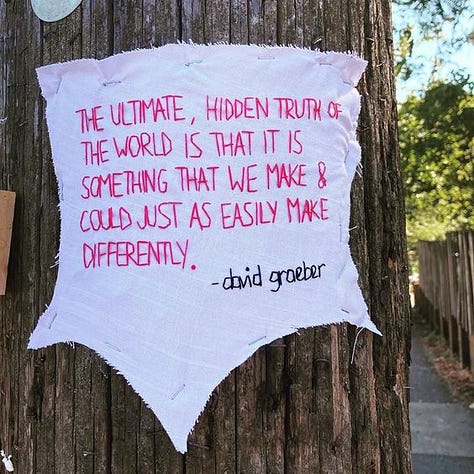 THE ULTIMATE, HIDDEN TRUTH OF
THE WORLD IS THAT IT IS
SOMETHING THAT WE MAKE &
COULD JUST AS EASILY MAKE
DIFFERENTLY.
-david graeber